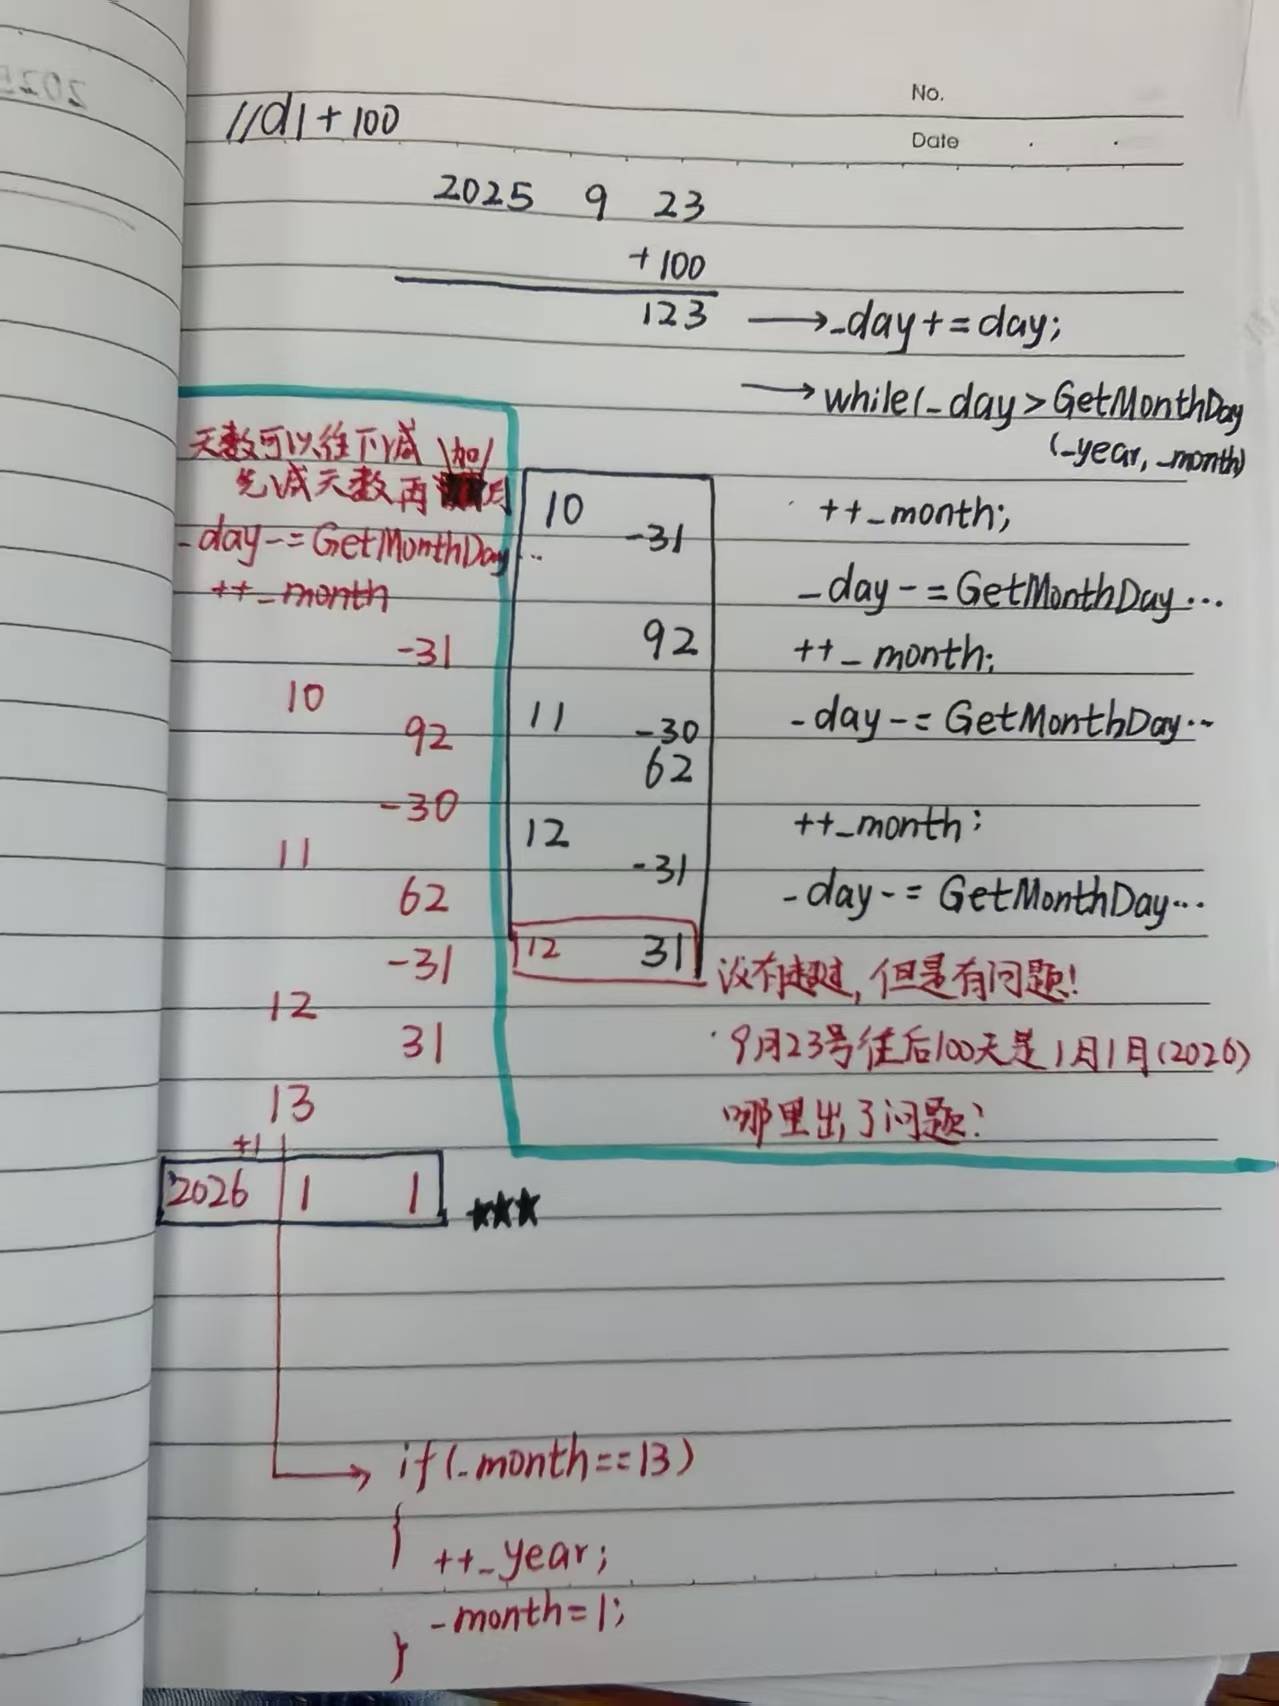 No.
Date
//d1+100
2025 9 23
+100
123 →_day+=day;
→while(_day>GetMonthDay
(_year,_month)
天数可以往下减 加
先减天数再 月
_day-=GetMonthDay...
++_month
-31
10
92
-30
11
62
-31
12
31
13
+1
2026 1 1 ★★★
10
-31
92
11 -30
62
12
-31
12 31
++_month;
_day-=GetMonthDay...
++_month;
_day-=GetMonthDay...
++_month;
_day-=GetMonthDay...
没有超过,但是有问题!
9月23号往后100天是1月1日(2026)
哪里出了问题?
if(_month==13)
{
++_year;
_month=1;
}